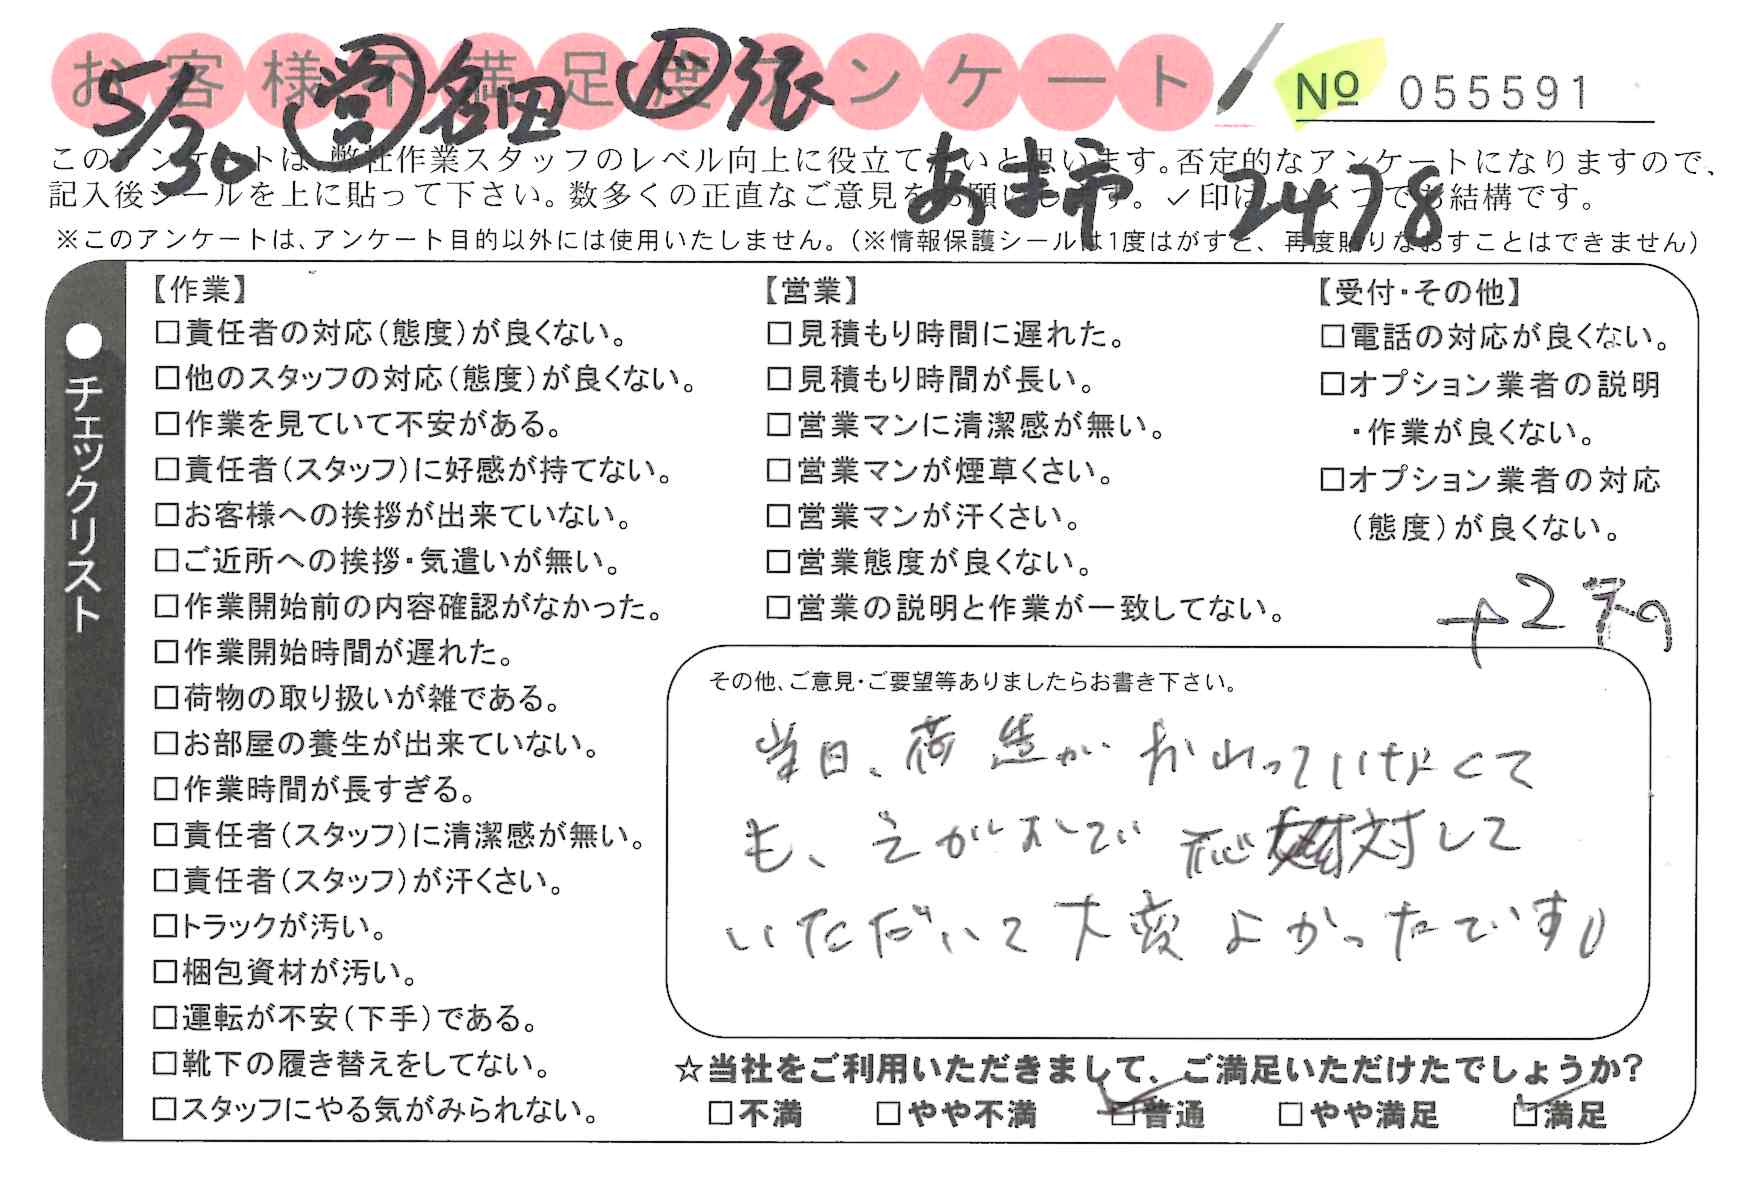 お客様不満足度アンケート
№ 055591
5/30 営 名田 D 張
あま市 2478
このアンケートは、弊社作業スタッフのレベル向上に役立てたいと思います。否定的なアンケートになりますので、
記入後シールを上に貼って下さい。数多くの正直なご意見をお願いします。✓印はいくつでも結構です。
※このアンケートは、アンケート目的以外には使用いたしません。（※情報保護シールは1度はがすと、再度貼りなおすことはできません）
●チェックリスト
【作業】
□責任者の対応（態度）が良くない。
□他のスタッフの対応（態度）が良くない。
□作業を見ていて不安がある。
□責任者（スタッフ）に好感が持てない。
□お客様への挨拶が出来ていない。
□ご近所への挨拶・気遣いが無い。
□作業開始前の内容確認がなかった。
□作業開始時間が遅れた。
□荷物の取り扱いが雑である。
□お部屋の養生が出来ていない。
□作業時間が長すぎる。
□責任者（スタッフ）に清潔感が無い。
□責任者（スタッフ）が汗くさい。
□トラックが汚い。
□梱包資材が汚い。
□運転が不安（下手）である。
□靴下の履き替えをしてない。
□スタッフにやる気がみられない。
【営業】
□見積もり時間に遅れた。
□見積もり時間が長い。
□営業マンに清潔感が無い。
□営業マンが煙草くさい。
□営業マンが汗くさい。
□営業態度が良くない。
□営業の説明と作業が一致してない。
【受付・その他】
□電話の対応が良くない。
□オプション業者の説明
・作業が良くない。
□オプション業者の対応
（態度）が良くない。
その他、ご意見・ご要望等ありましたらお書き下さい。
当日、荷造がおわっていなくて
も、えがおで応対して
いただいて大変よかったです。
☆当社をご利用いただきまして、ご満足いただけたでしょうか？
□不満 □やや不満 □普通 □やや満足 □満足